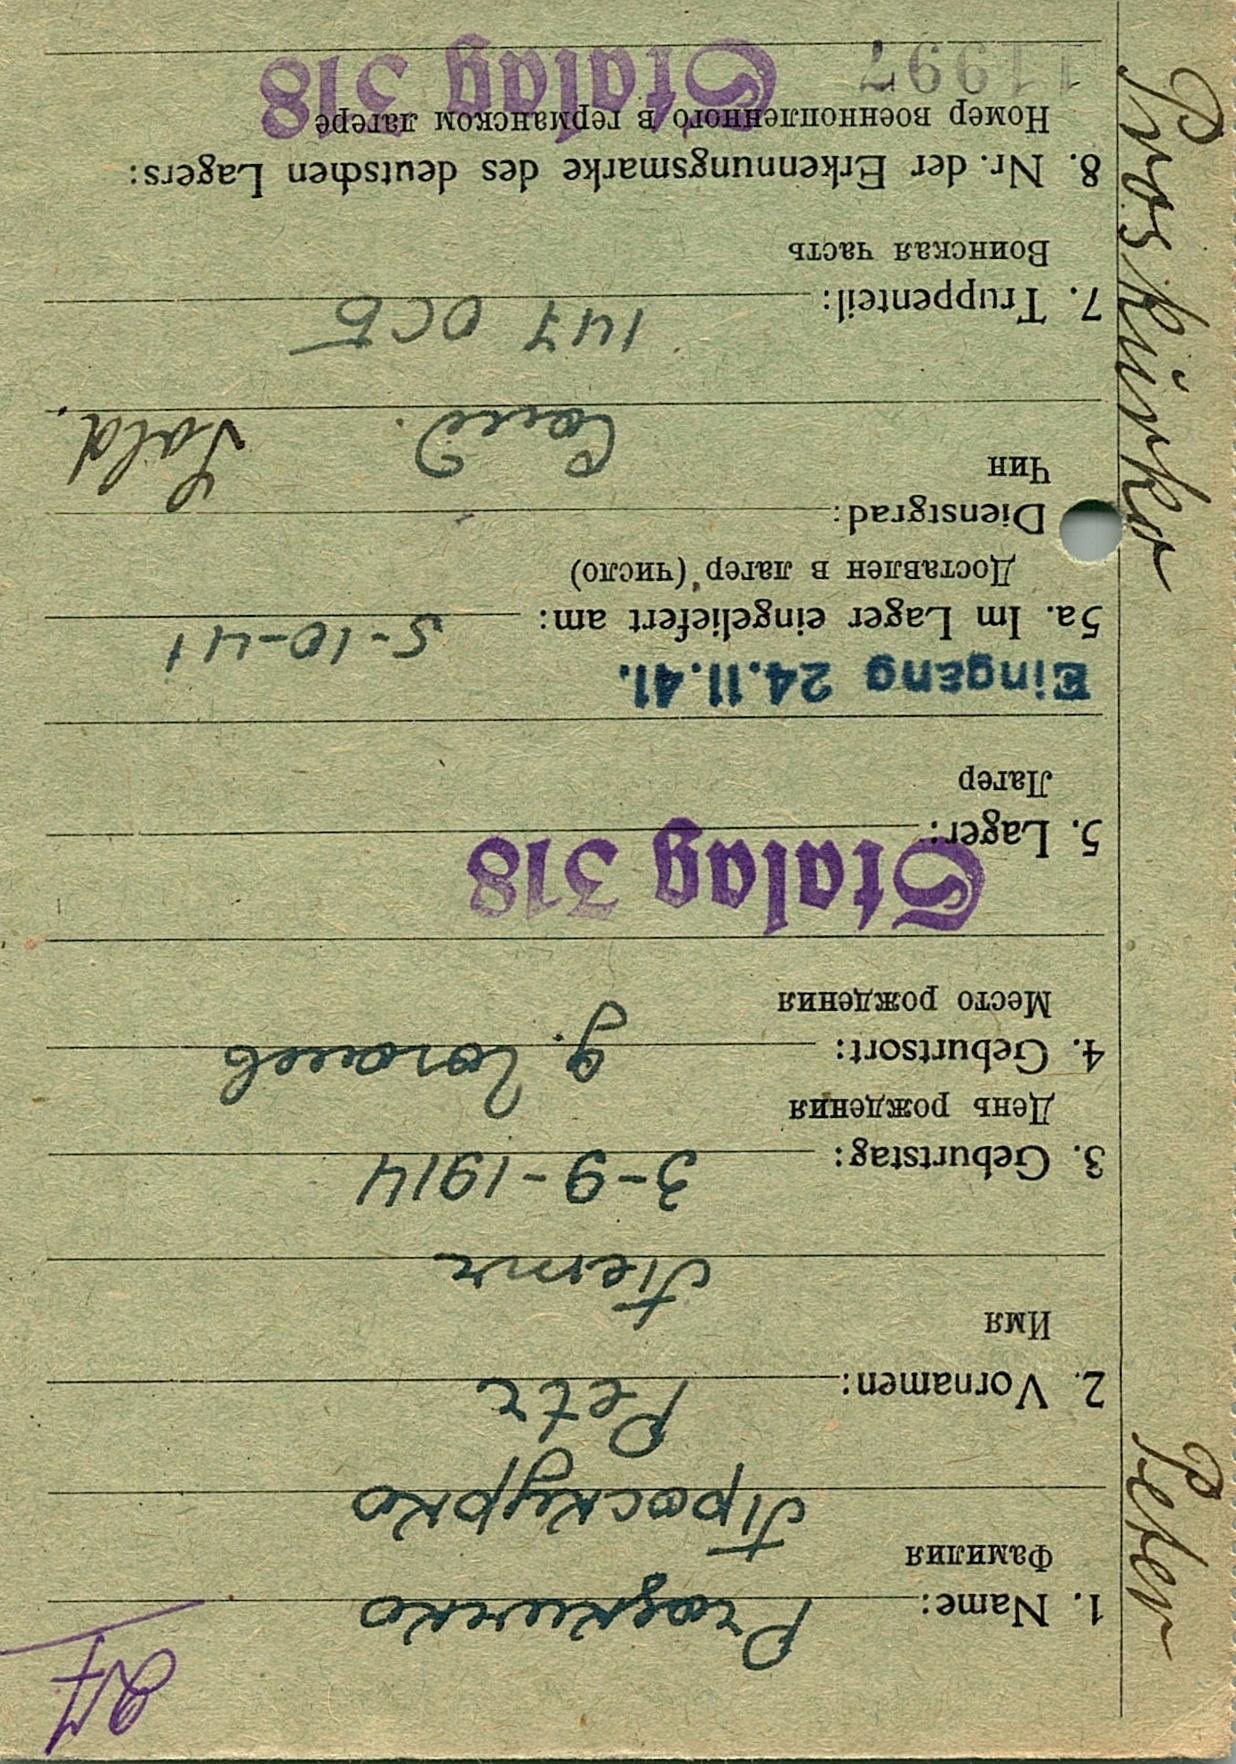 1. Name: Proskurko
Фамилия
Проскурко
2. Vornamen: Petr
Имя
Петр
3. Geburtstag: 3-9-1914
День рождения
4. Geburtsort:
Место рождения
5. Lager: Stalag 318
Лагер
Eingang 24.11.41.
5a. Im Lager eingeliefert am: 5-10-41
Доставлен в лагер (число)
Dienstgrad:
Чин
Солд. Sold.
7. Truppenteil: 147 ОСБ
Воинская часть
8. Nr. der Erkennungsmarke des deutschen Lagers:
Номер военнопленного в германском лагере
11997 Stalag 318
Proskŭrko Peter